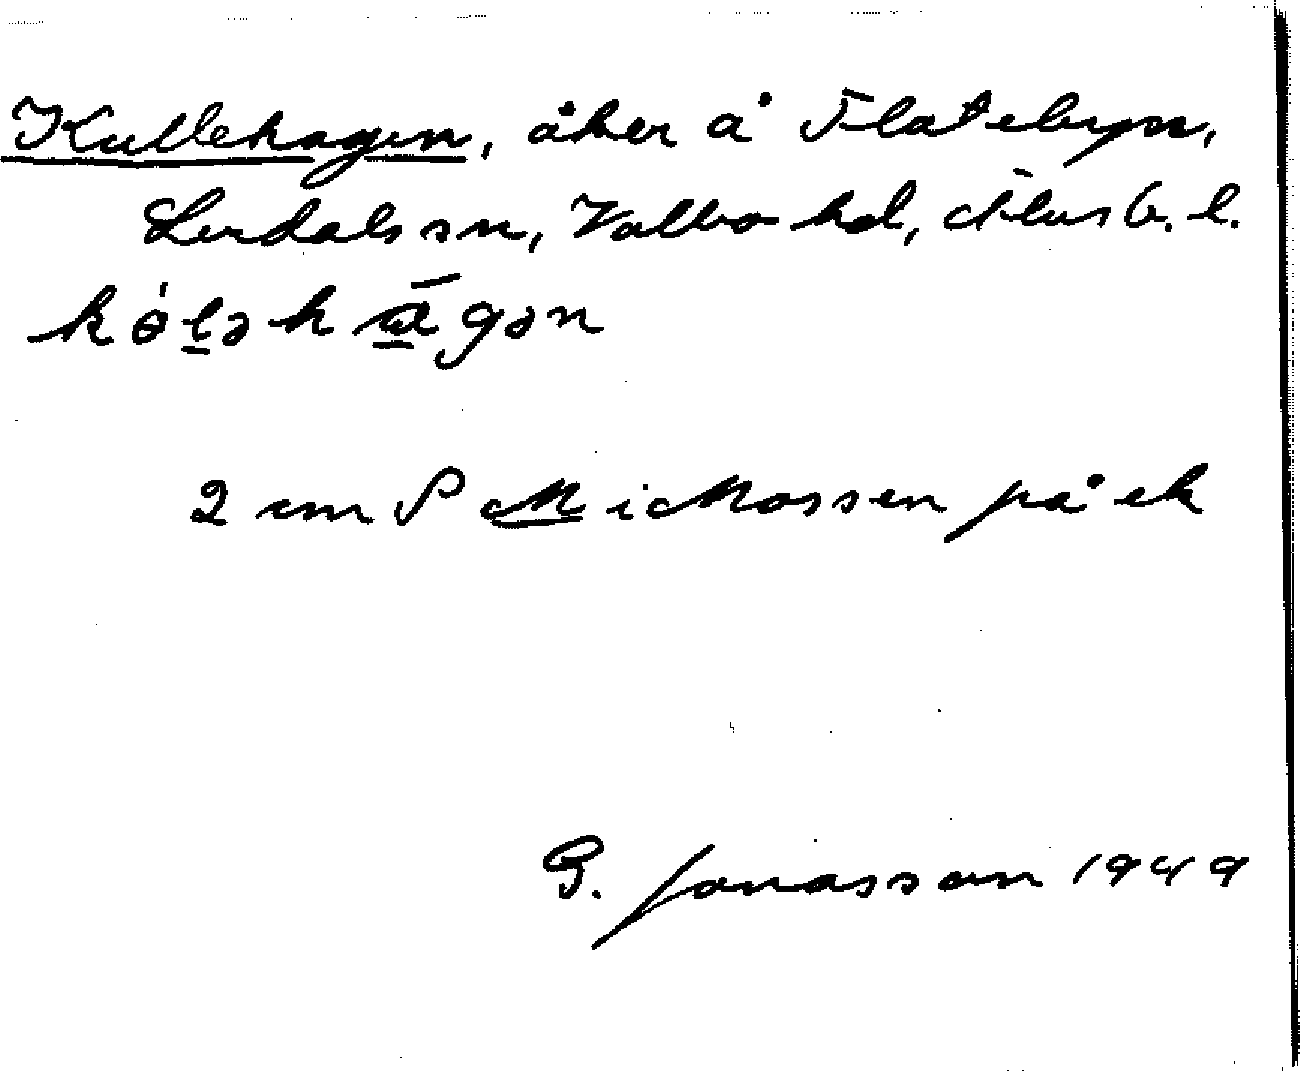 Kullehagen, åker å Flatebyn,
Lerdals sn, Valbo hd, Älvsb. l.
kɵ́lə hāgən
2 cm S M i Mossen på ek
G. Jonasson 1949